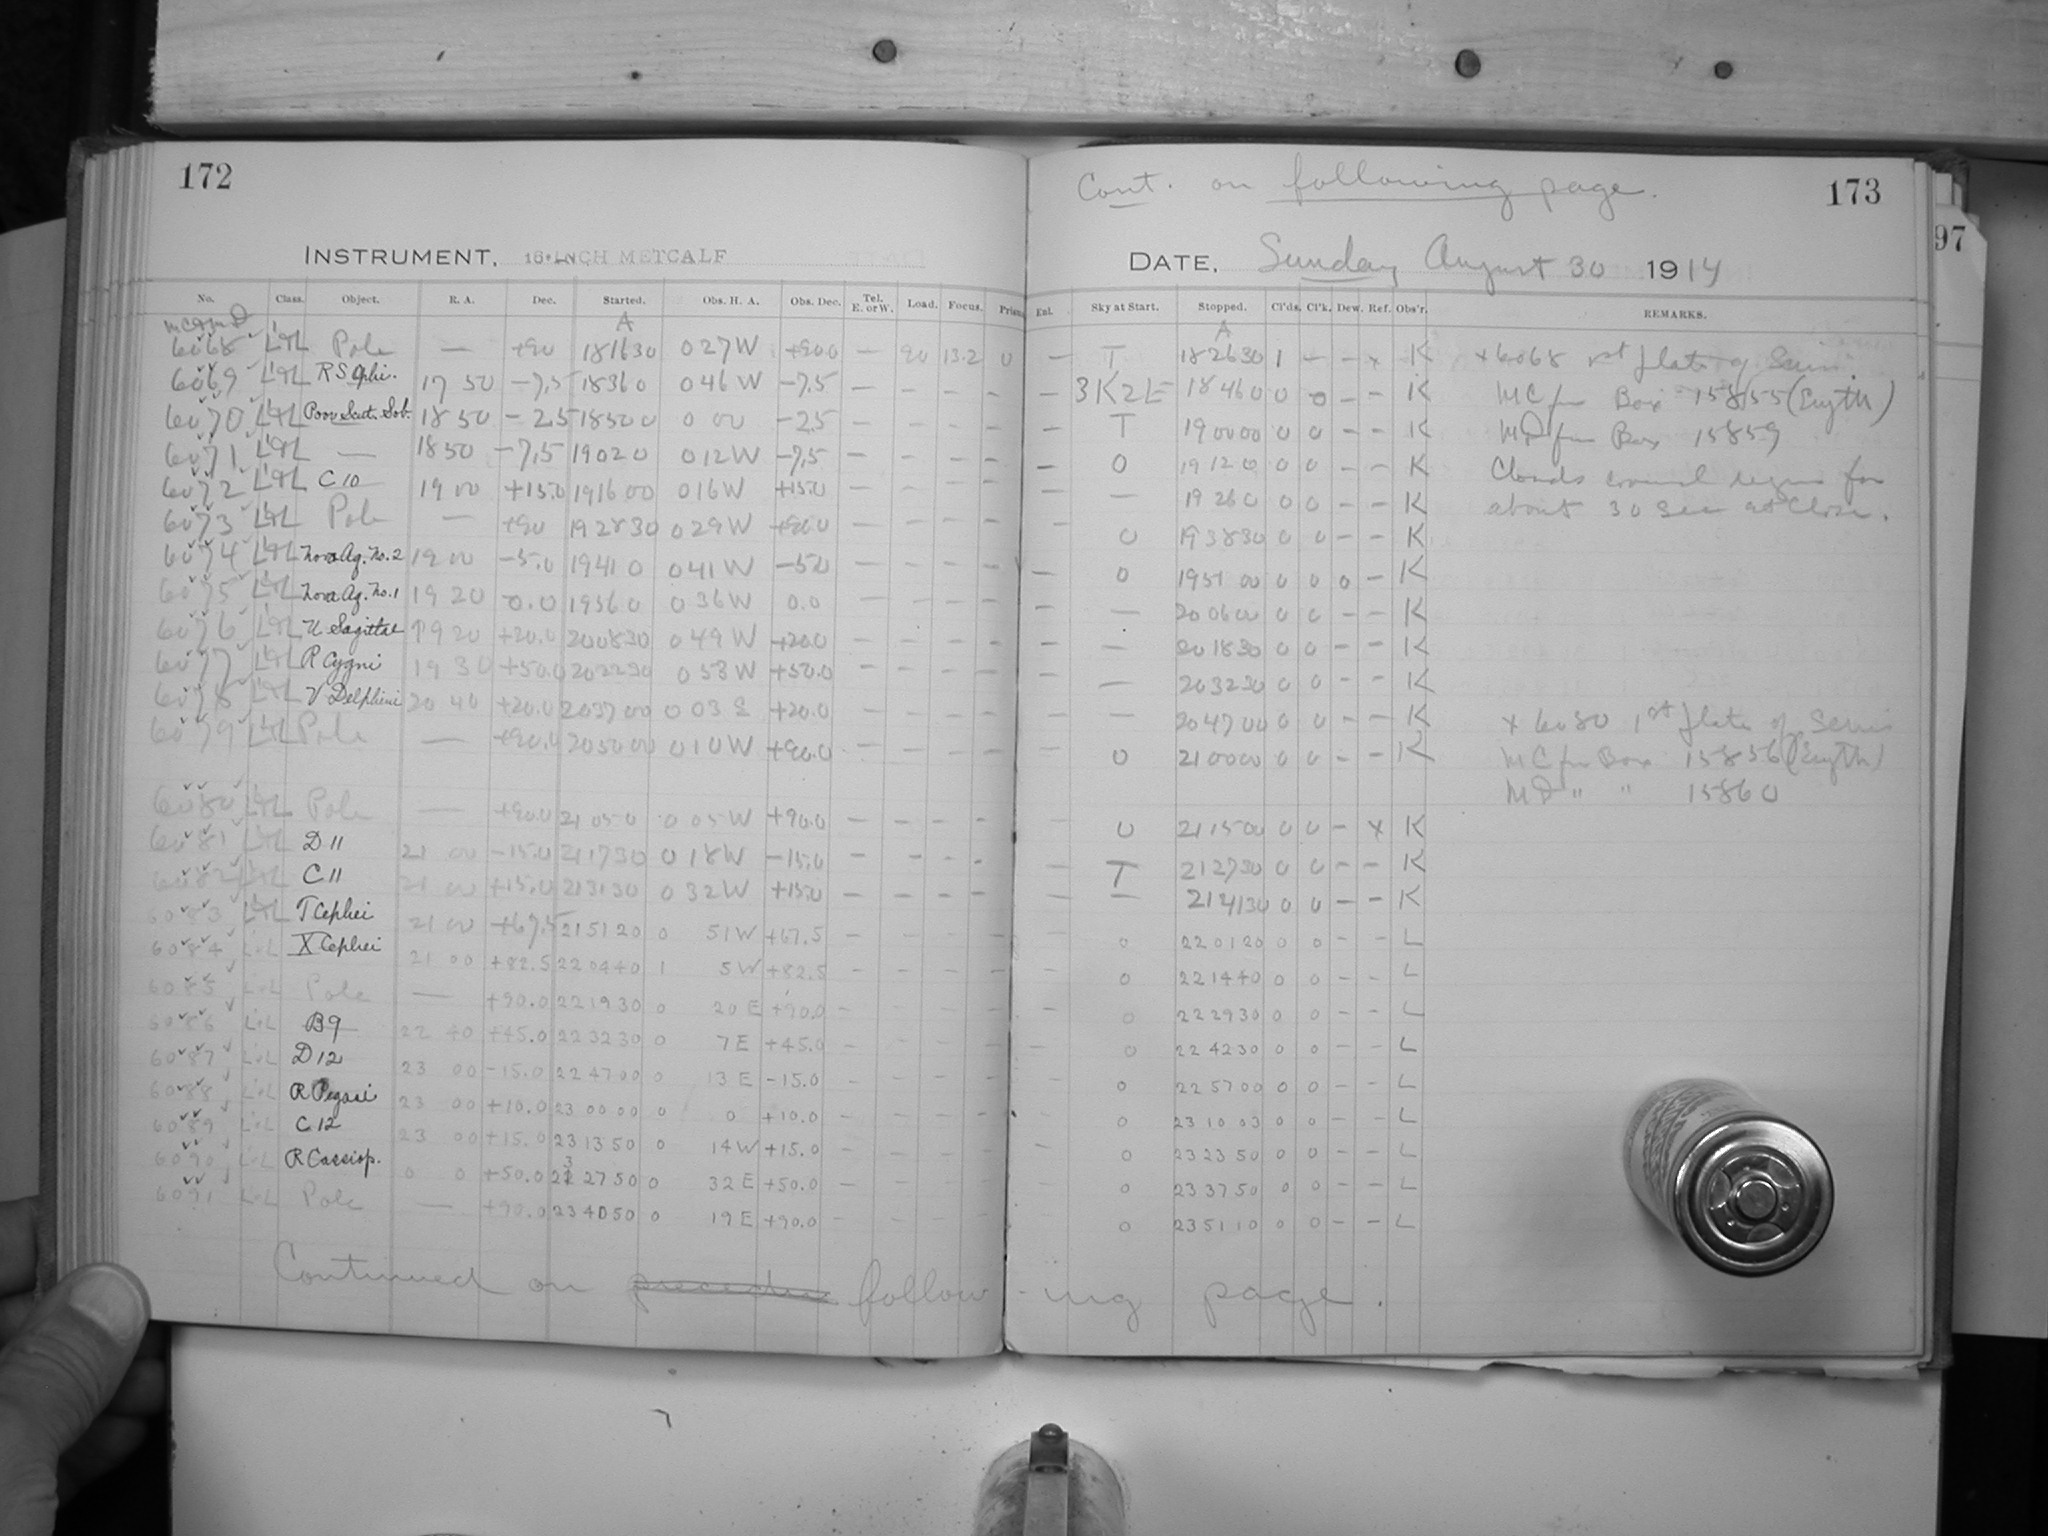 172
INSTRUMENT, 16-INCH METCALF
No. Class. Object. R. A. Dec. Started. Obs. H. A. Obs. Dec. Tel. E. or W. Load. Focus. Prism
MC & MD A
6068 L+L Pole — +90 181630 0 27 W +90.0 — 90 13.2 0
6069 L+L RS Ophi. 17 50 -7.5 18360 0 46 W -7.5 — — — —
6070 L+L Poor Scut. Sob. 18 50 -2.5 18500 0 00 -2.5 — — — —
6071 L+L — 18 50 -7.5 19020 0 12 W -7.5 — — — —
6072 L+L C10 19 00 +15.0 191600 0 16 W +15.0 — — — —
6073 L+L Pole — +90 192830 0 29 W +90.0 — — — —
6074 L+L Nova Aq. No. 2 19 00 -5.0 19410 0 41 W -5.0 — — — —
6075 L+L Nova Aq. No. 1 19 20 0.0 19560 0 36 W 0.0 — — — —
6076 L+L U Sagittae 19 20 +20.0 200830 0 49 W +20.0 — — — —
6077 L+L R Cygni 19 30 +50.0 202230 0 53 W +50.0 — — — —
6078 L+L V Delphini 20 40 +20.0 203700 0 03 E +20.0 — — — —
6079 L+L Pole — +90.0 205000 0 10 W +90.0 — — — —
6080 L+L Pole — +90.0 21050 0 05 W +90.0 — — — —
6081 L+L D11 21 00 -15.0 211730 0 18 W -15.0 — — — —
6082 L+L C11 21 00 +15.0 213130 0 32 W +15.0 — — — —
6083 L+L T Cephei 21 00 +67.5 215120 0 51 W +67.5 — — — —
6084 L+L X Cephei 21 00 +82.5 220440 1 5 W +82.5 — — — —
6085 L+L Pole — +90.0 221930 0 20 E +90.0 — — — —
6086 L+L B9 22 40 +45.0 223230 0 7 E +45.0 — — — —
6087 L+L D12 23 00 -15.0 224700 0 13 E -15.0 — — — —
6088 L+L R Pegasi 23 00 +10.0 230000 0 0 +10.0 — — — —
6089 L+L C12 23 00 +15.0 231350 0 14 W +15.0 — — — —
6090 L+L R Cassiop. 0 0 +50.0 232750 0 32 E +50.0 — — — —
6091 L+L Pole — +90.0 234050 0 19 E +90.0 — — — —
Continued on preceding following page.
Cont. on following page.
173
97
DATE, Sunday August 30 1914
Ent. Sky at Start. Stopped. Cl'ds. Cl'k. Dew. Ref. Obs'r. REMARKS.
A
— T 182630 1 — — x K x 6068 1st plate of Series
— 3K2E 18460 0 0 — — K MC fm Box 15855 (Eryth)
— T 190000 0 0 — — K MD fm Box 15859
— 0 19120 0 0 — — K Clouds covered region for
— — 19260 0 0 — — K about 30 sec at close.
— 0 193830 0 0 — — K
— 0 195100 0 0 0 — K
— — 200600 0 0 — — K
— — 201830 0 0 — — K
— — 203230 0 0 — — K
— — 204700 0 0 — — K x 6080 1st plate of Series
— 0 210000 0 0 — — K MC fm Box 15856 (Eryth)
MD " " 15860
— 0 211500 0 0 — x K
— T 212730 0 0 — — K
— — 214130 0 0 — — K
— 0 220120 0 0 — — L
— 0 221440 0 0 — — L
— 0 222930 0 0 — — L
— 0 224230 0 0 — — L
— 0 225700 0 0 — — L
— 0 231003 0 0 — — L
— 0 232350 0 0 — — L
— 0 233750 0 0 — — L
0 235110 0 0 — — L